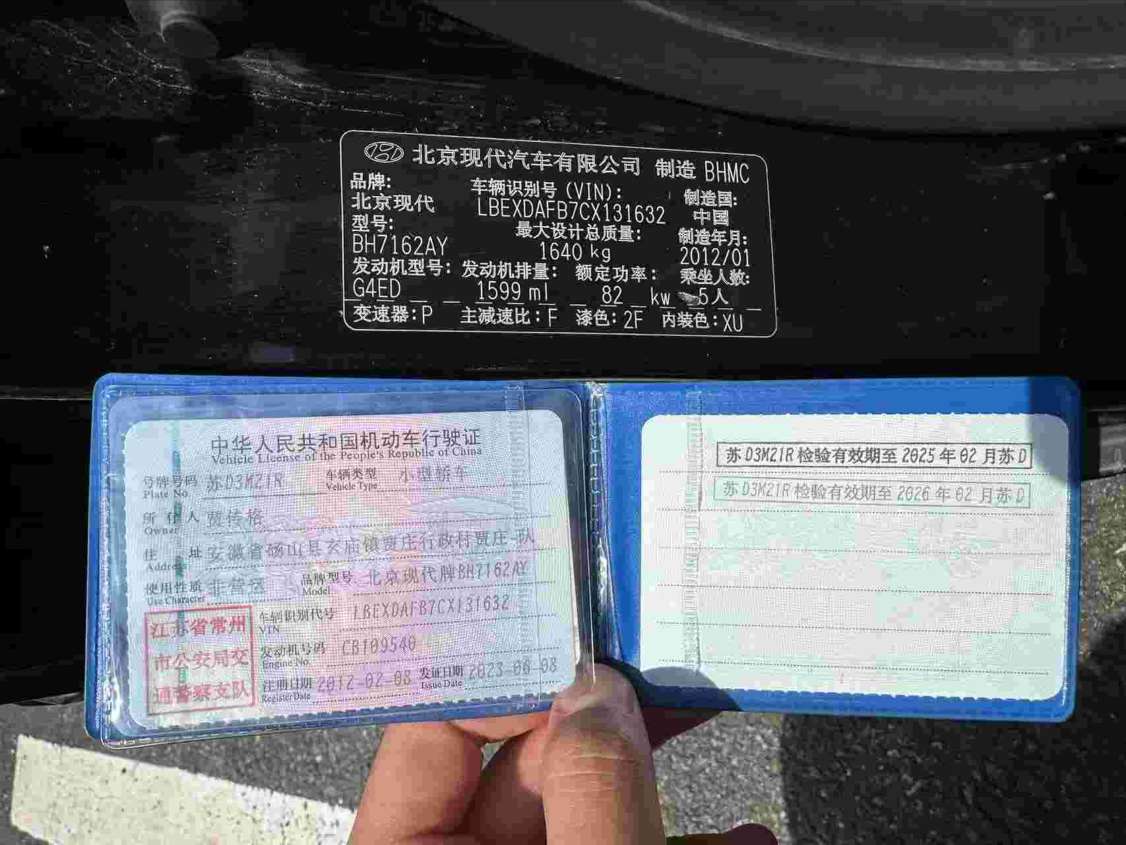 北京现代汽车有限公司 制造 BHMC
品牌: 车辆识别号(VIN): 制造国:
北京现代 LBEXDAFB7CX131632 中国
型号: 最大设计总质量: 制造年月:
BH7162AY 1640 kg 2012/01
发动机型号: 发动机排量: 额定功率: 乘坐人数:
G4ED 1599 ml 82 kw 5人
变速器:P 主减速比:F 漆色:2F 内装色:XU
中华人民共和国机动车行驶证
Vehicle License of the People's Republic of China
号牌号码 苏D3M21R 车辆类型 小型轿车
Plate No. Vehicle Type
所有人 贾传格
Owner
住址 安徽省砀山县玄庙镇贾庄行政村贾庄 队
Address
使用性质 非营运 品牌型号 北京现代牌BH7162AY
Use Character Model
车辆识别代号 LBEXDAFB7CX131632
VIN
发动机号码 CB109540
Engine No.
注册日期 2012-02-08 发证日期 2023-06-08
Register Date Issue Date
江苏省常州
市公安局交
通警察支队
苏D3M21R 检验有效期至 2025 年 02 月苏D
苏D3M21R 检验有效期至 2026 年 02 月苏D